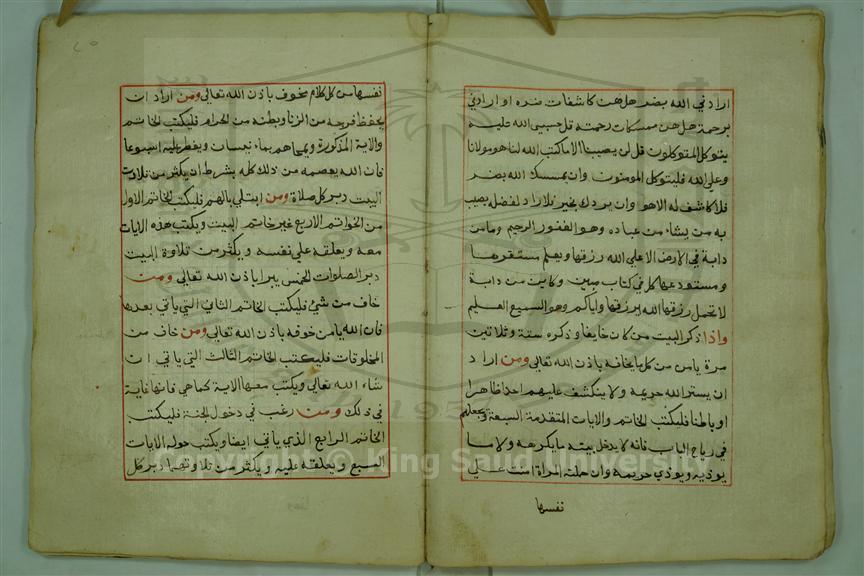 ارادني الله بضر هل هن كاشفات ضره او ارادني
برحمة هل هن ممسكات رحمته قل حسبي الله عليه
يتوكل المتوكلون قل لن يصيبنا الا ماكتب الله لنا هو مولانا
وعلي الله فليتوكل المومنون وان يمسسك الله بضر
فلا كاشف له الا هو وان يردك بخير فلا راد لفضله يصيب
به من يشاء من عباده وهو الغفور الرحيم وما من
دابة في الارض الا علي الله رزقها ويعلم مستقرها
ومستودعها كل في كتاب مبين وكاين من دابة
لا تحمل رزقها الله يرزقها واياكم وهو السميع العليم
واذا ذكر البيت من كان خايفا وذكره ستة وثلاثين
مرة يامن من كل ما يخافه باذن الله تعالي ومن اراد
ان يستر الله حريمه ولا ينكشف عليهم احد ظاهرا
او باطنا فليكتب الخاتم والايات المتقدمة السبعة ويجعلهم
في رتاج الباب فانه لا يدخل بيته ما يكرهه ولا ما
يوذيه ويوذي حريمه وان حملته المراة امنت علي
نفسها
٢٥
نفسها من كل كلام مخوف باذن الله تعالي ومن اراد ان
يحفظ فرجه من الزنا وبطنه من الحرام فليكتب الخاتم
والاية المذكورة ويمحاهم بماء نيسان ويفطر عليه اسبوعا
فان الله يعصمه من ذلك كله بشرط ان يكثر من تلاوة
البيت دبر كل صلاة ومن ابتلي بالهم فليكتب الخاتم الاول
من الخواتم الاربع غير خاتم البيت ويكتب هذه الايات
معه ويعلقه علي نفسه ويكثر من تلاوة البيت
دبر الصلوات الخمس يبرا باذن الله تعالي ومن
خاف من شئ فليكتب الخاتم الثاني التي ياتي بعدها
فان الله يامن خوفه باذن الله تعالي ومن خاف من
المخلوقات فليكتب الخاتم الثالث التي ياتي ان
شاء الله تعالي ويكتب معها الاية كما هي فانها غاية
في ذلك ومن رغب في دخول الجنة فليكتب
الخاتم الرابع الذي ياتي ايضا ويكتب حوله الايات
السبع ويعلقه عليه ويكثر من تلاوتها دبر كل
Copyright © King Saud University
1957